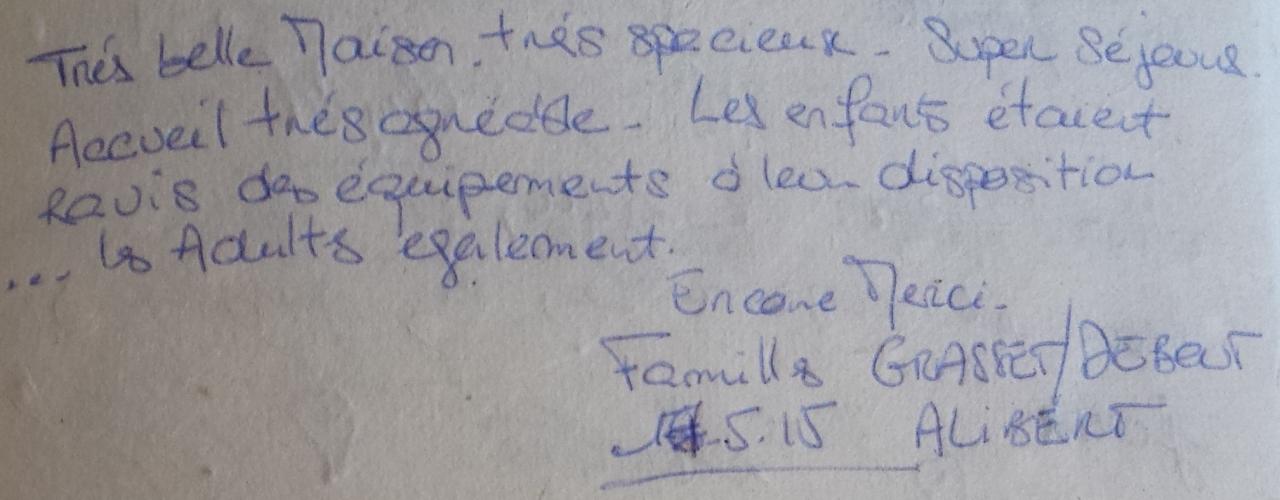 Trés belle Maison. trés spacieux - Super Séjour.
Accueil trés agréable - Les enfants étaient
Ravis des équipements à leur disposition
... les Adults egalement.
Encore Merci -
Famills GRASSET/DEBOUT
5.15 ALIBERT